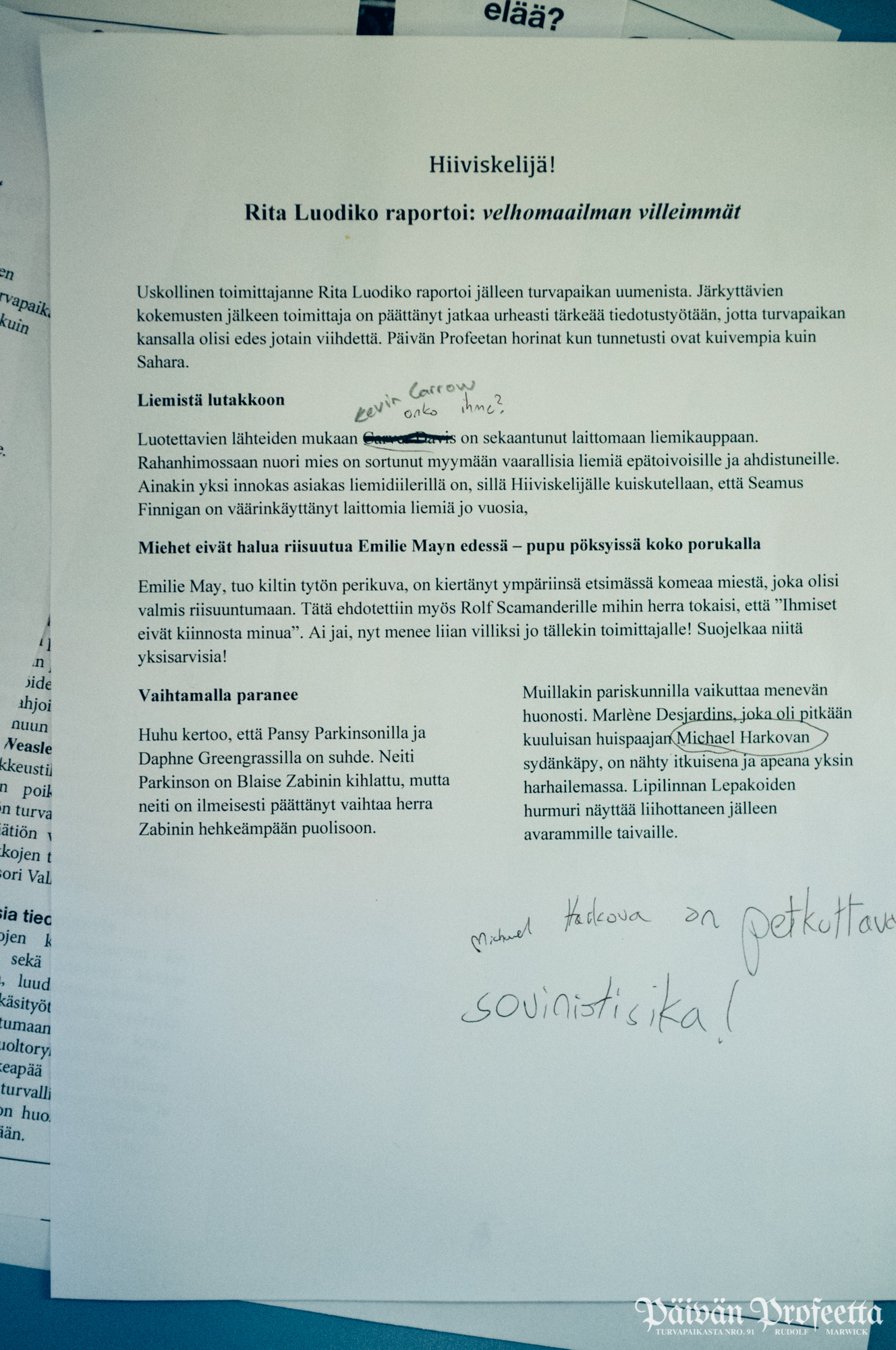 elää?
Hiiviskelijä!
Rita Luodiko raportoi: velhomaailman villeimmät
Uskollinen toimittajanne Rita Luodiko raportoi jälleen turvapaikan uumenista. Järkyttävien
kokemusten jälkeen toimittaja on päättänyt jatkaa urheasti tärkeää tiedotustyötään, jotta turvapaikan
kansalla olisi edes jotain viihdettä. Päivän Profeetan horinat kun tunnetusti ovat kuivempia kuin
Sahara.
Liemistä lutakkoon
Kevin Carrow
onko ihme?
Luotettavien lähteiden mukaan Carver Davis on sekaantunut laittomaan liemikauppaan.
Rahanhimossaan nuori mies on sortunut myymään vaarallisia liemiä epätoivoisille ja ahdistuneille.
Ainakin yksi innokas asiakas liemidiilerillä on, sillä Hiiviskelijälle kuiskutellaan, että Seamus
Finnigan on väärinkäyttänyt laittomia liemiä jo vuosia,
Miehet eivät halua riisuutua Emilie Mayn edessä – pupu pöksyissä koko porukalla
Emilie May, tuo kiltin tytön perikuva, on kiertänyt ympäriinsä etsimässä komeaa miestä, joka olisi
valmis riisuuntumaan. Tätä ehdotettiin myös Rolf Scamanderille mihin herra tokaisi, että ”Ihmiset
eivät kiinnosta minua”. Ai jai, nyt menee liian villiksi jo tällekin toimittajalle! Suojelkaa niitä
yksisarvisia!
Vaihtamalla paranee
Huhu kertoo, että Pansy Parkinsonilla ja
Daphne Greengrassilla on suhde. Neiti
Parkinson on Blaise Zabinin kihlattu, mutta
neiti on ilmeisesti päättänyt vaihtaa herra
Zabinin hehkeämpään puolisoon.
Muillakin pariskunnilla vaikuttaa menevän
huonosti. Marlène Desjardins, joka oli pitkään
kuuluisan huispaajan Michael Harkovan
sydänkäpy, on nähty itkuisena ja apeana yksin
harhailemassa. Lipilinnan Lepakoiden
hurmuri näyttää liihottaneen jälleen
avarammille taivaille.
Michael Harkova on petkuttava
sovinistisika!
Päivän Profeetta
TURVAPAIKASTA NRO. 91 RUDOLF MARWICK